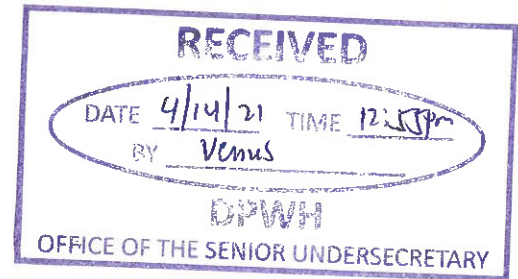 RECEIVED
DATE 4/14/21 TIME 12:53pm
BY Venus
DPWH
OFFICE OF THE SENIOR UNDERSECRETARY